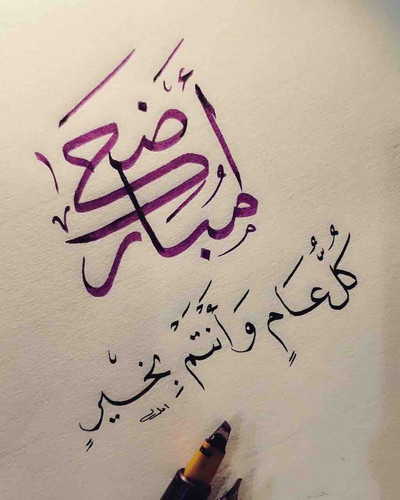 أضحى مبارك
كُلُّ عَامٍ وَأَنْتُمْ بِخَيْرٍ